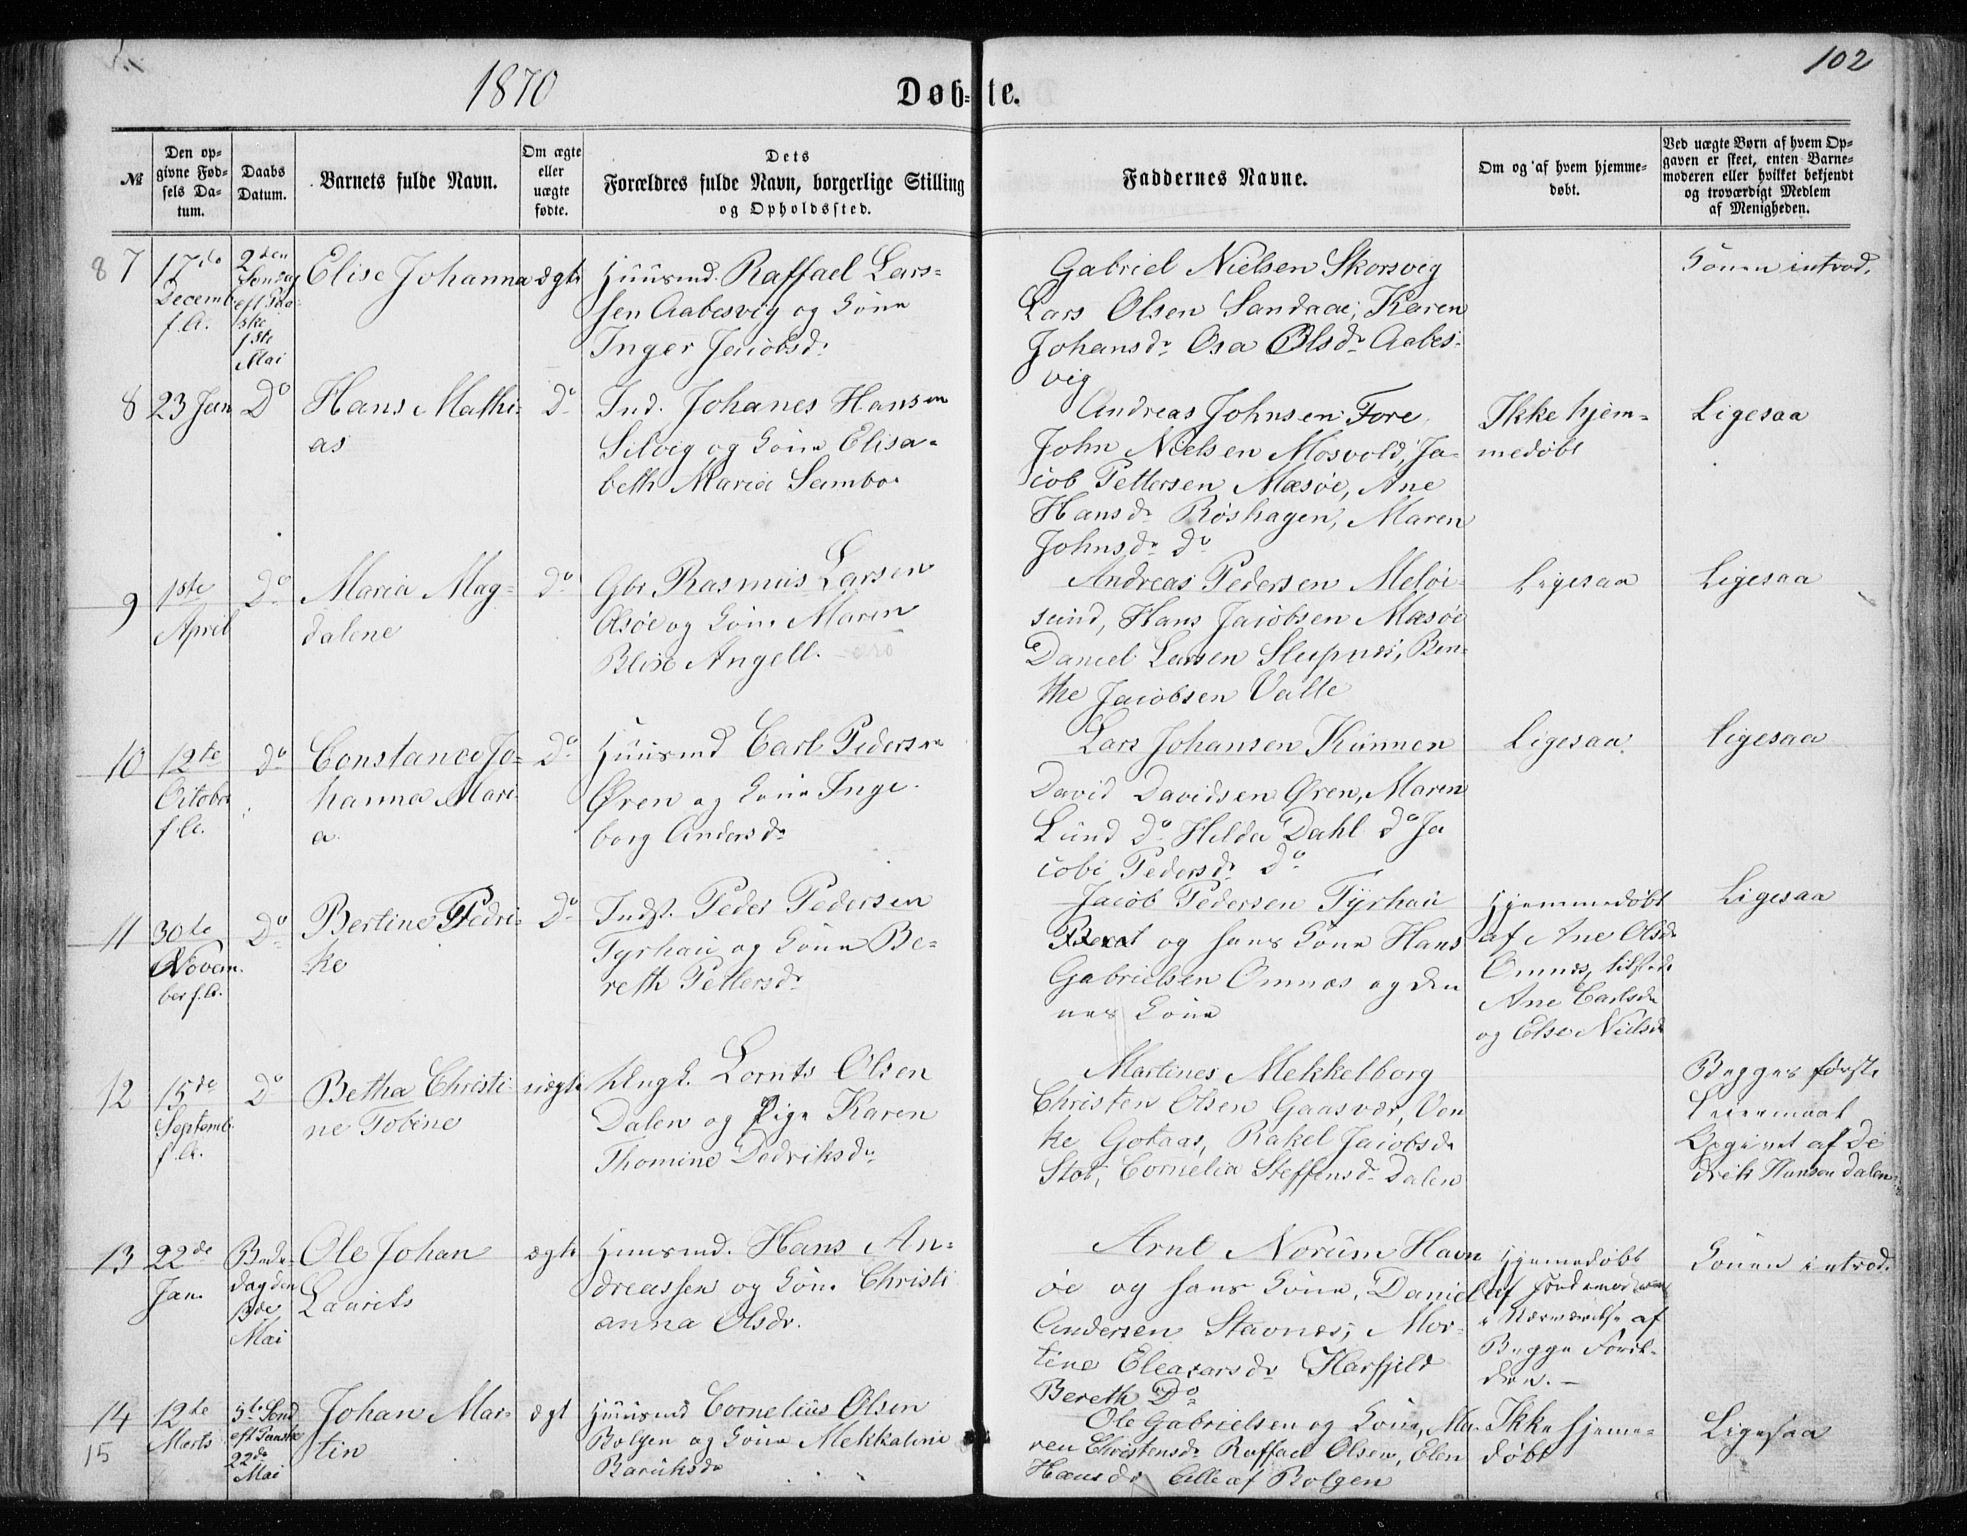 1870
Døb-te.
102
№
Den op-
givne Fød-
sels Da-
tum.
Daabs
Datum.
Barnets fulde Navn.
Om ægte
eller
uægte
fødte.
Dets
Forældres fulde Navn, borgerlige Stilling
og Opholdssted.
Faddernes Navne.
Om og af hvem hjemme-
døbt.
Ved uægte Børn af hvem Op-
gaven er skeet, enten Barne-
moderen eller hvilket bekjendt
og troværdigt Medlem
af Menigheden.
8 7
17de
Decemb
f.A.
2den
Søndag
eft Paa-
ske
1ste
Mai
Elise Johanna
ægte
Huusmd. Raffael Lars-
sen Aabesvig og Kone
Inger Jacobsdr
Gabriel Nielsen Skorsvig
Lars Olsen Sandaa, Karen
Johansdr Osa Olsdr Aabes-
vig
Konen introd.
8
23 Jan
Do
Hans Mathi-
as
Do
Ind. Johanes Hansen
Silvig og Kone Elisa-
beth Maria Sambo
Andreas Johnsen Fore
John Nielsen Mosvold, Ja-
cob Pettersen Mæsøe, Ane
Hansdr Røshagen, Maren
Johnsdr do
Ikke hjem-
medøbt
Ligesaa
9
1ste
April
Do
Maria Mag-
dalene
Do
Gbr Rasmus Larsen
Æsøe og Kone Maren
Elise Angell.
Andreas Pedersen Meløi-
sund, Hans Jacobsen Mæsøe
Daniel Larsen Slupnes, Ben-
the Jacobsen Valle
Ligesaa
Ligesaa
10
12te
October
f.A.
Do
Constance Jo-
hanna Mari-
a
Do
Huusmd Carl Pedersen
Øren og Kone Inge-
borg Andersdr
Lars Johansen Kunnen
David Davidsen Øren, Maren
Lund Do Hilda Dahl do Ja
cobi Pedersdr Do
Ligesaa
Ligesaa
11
30te
Novem-
ber f.A.
Do
Bertine Fredri-
ke
Do
Indst. Peder Pedersen
Tyrhau og Kone Be-
reth Pettersdr
Jacob Pedersen Tyrhau
og hans Kone Hans
Gabrielsen Omnæs og den
nes Kone
Hjemmedøbt
af Ane Olsdr
Omnæs, tilstede
Ane Carlsdr
og Else Nielsdr
Ligesaa
12
15de
Septemb.
f.A.
Do
Betha Christi-
ne Tobine
uægte
Ungk. Lornts Olsen
Dalen og Pige Karen
Thomine Dedriksdr
Martines Mekkelborg
Christen Olsen Gaasvær, Ven
ke Gotaas, Rakel Jacobsdr
Stot, Cornelia Steffensdr Dalen
Begges første
Leiermaal
Opgivet af Di
drik Hansen Dalen
13
22de
Jan.
Bede-
dag den
13de
Mai
Ole Johan
Laurits
ægte
Huusmd. Hans An-
dreassen og Kone Christi
anna Olsdr.
Arnt Norum Havn
øe og hans Kone, Daniel
Andersen Stavnæs, Mor-
tine Eleazarsdr Harfjeld
Bereth Do
Hjemmedøbt
af Jordemoderen
i Nærværelse af
Begge Foræl-
dre.
Konen introd.
14
15
12te
Marts
5te Sønd
eft Paaske
22de
Mai
Johan Mar-
tin
ægt
Huusmd Cornelius Olsen
Bolgen og Kone Mekkaline
Baruksdr
Ole Gabrielsen og Kone, Ma-
ren Christensdr Raffael Olsen, Elen
Hansdr Alle af Bolgen
Ikke hjeme-
døbt
Ligesaa